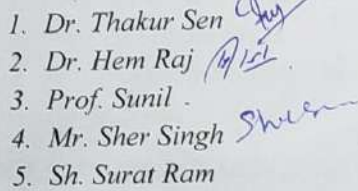 1. Dr. Thakur Sen
2. Dr. Hem Raj
3. Prof. Sunil .
4. Mr. Sher Singh
5. Sh. Surat Ram